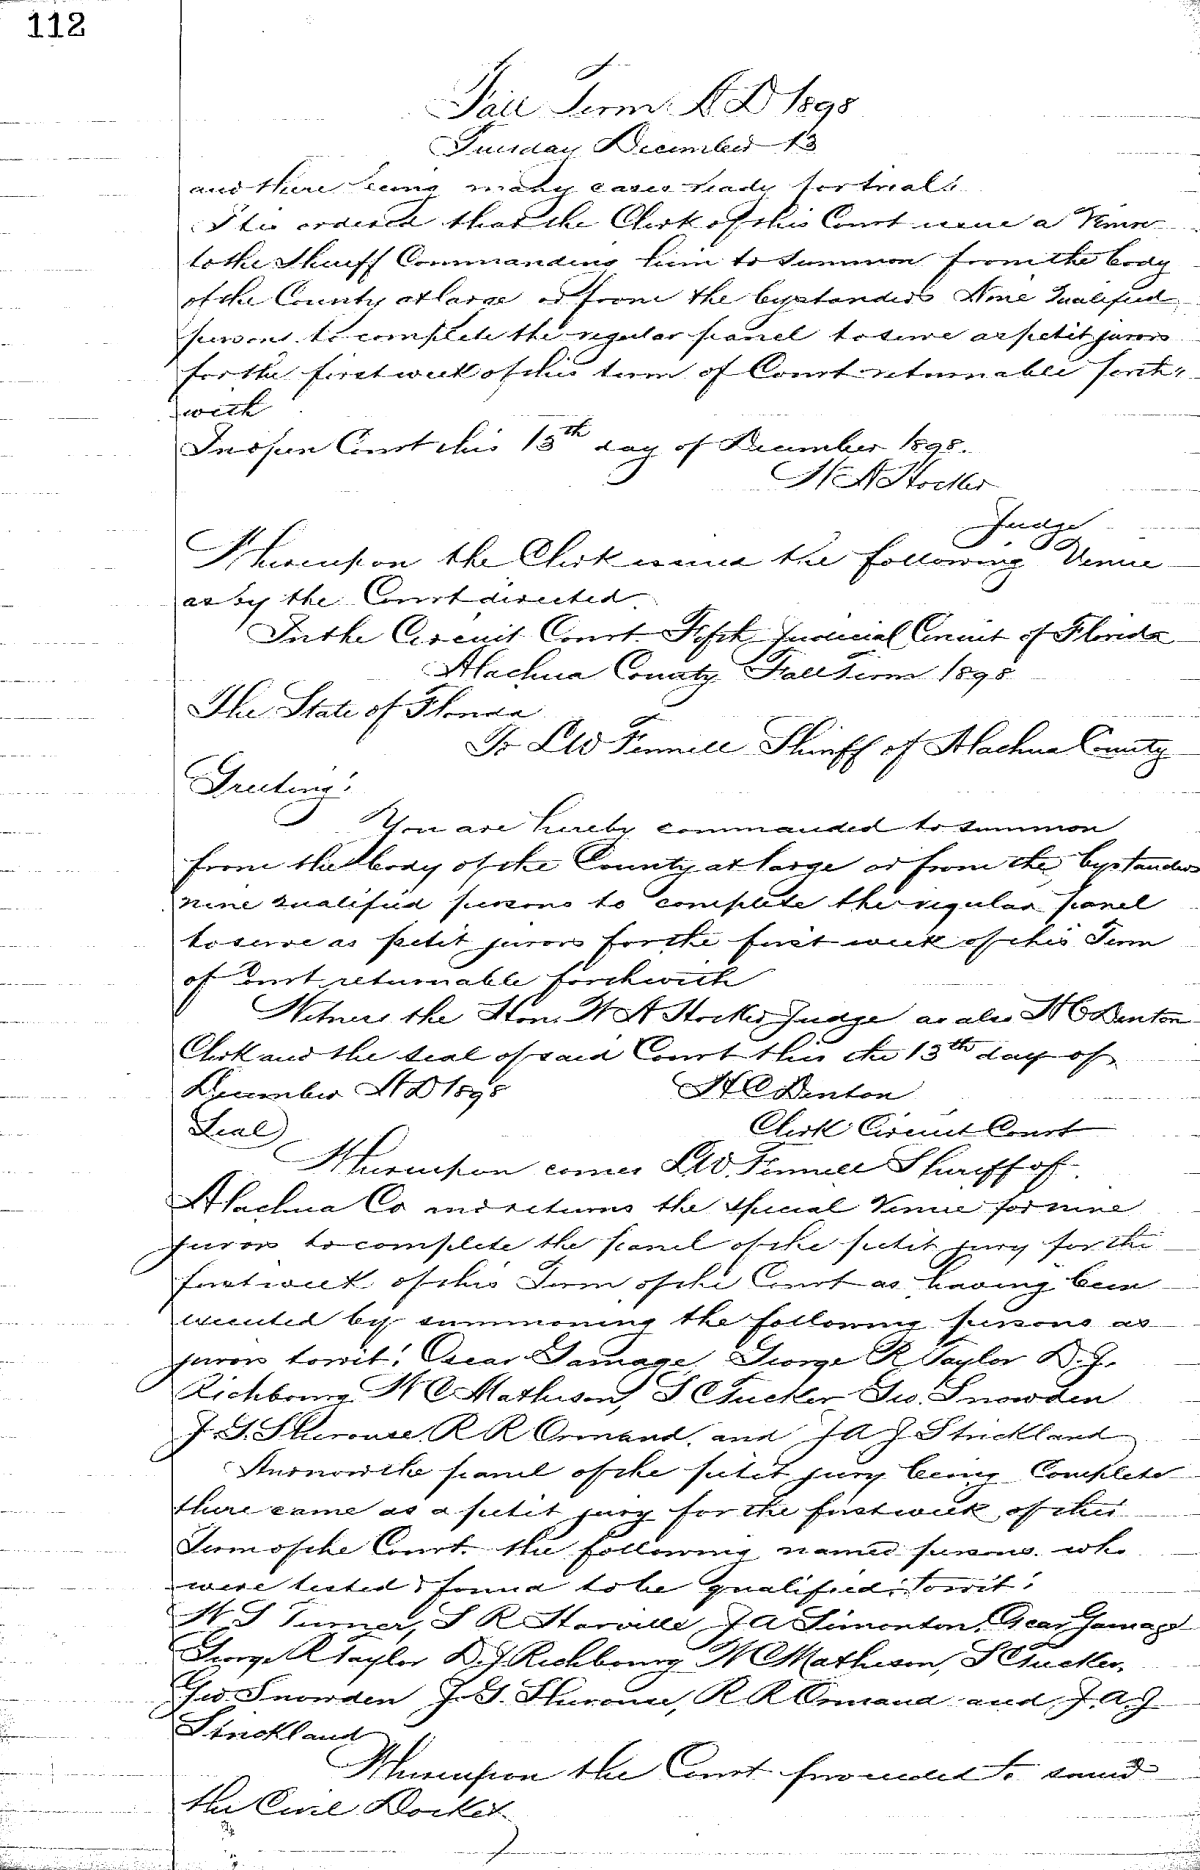 112
Fall Term A D 1898
Tuesday December 13
and there being many cases ready for trial:
It is ordered that the Clerk of this Court issue a Venire
to the Sheriff Commanding him to summon from the body
of the County at large or from the bystanders Nine Qualified
persons to complete the regular panel to serve as petit jurors
for the first week of this term of Court returnable forth-
with
In open Court this 13th day of December 1898.
W A Hocker
Judge
Whereupon the Clerk issued the following Venire
as by the Court directed.
In the Circuit Court Fifth Judicial Circuit of Florida
Alachua County Fall Term 1898
The State of Florida
To L W Fennell Sheriff of Alachua County
Greeting:
You are hereby commanded to summon
from the body of the County at large or from the bystanders
nine qualified persons to complete the regular panel
to serve as petit jurors for the first week of this Term
of Court returnable forthwith
Witness the Hon. W A Hocker Judge as also H C Denton
Clerk and the seal of said Court this the 13th day of
December A D 1898 H C Denton
Seal) Clerk Circuit Court
Whereupon comes L W. Fennell Sheriff of
Alachua Co and returns the special Venire for nine
jurors to complete the panel of the petit jury for the
first week of this Term of the Court as having been
executed by summoning the following persons as
jurors towit: Oscar Gamage, George R Taylor D. J.
Richbourg W C Matheson, S C Tucker Geo. Snowden
J. G. Sherouse R R Ormand, and J A J Strickland
And now the panel of the petit jury being Complete
there came as a petit jury for the first week of this
Term of the Court. the following named persons who
were tested & found to be qualified: towit:
W S Turner, S R J A Simonton, Oscar Gamage
George R Taylor D. J. Richbourg W C Matheson, S C Tucker,
Geo. Snowden J. G. Sherouse, R R Ormand and J. A. J
Strickland
Whereupon the Court proceeded to sound
the Civil Docket.